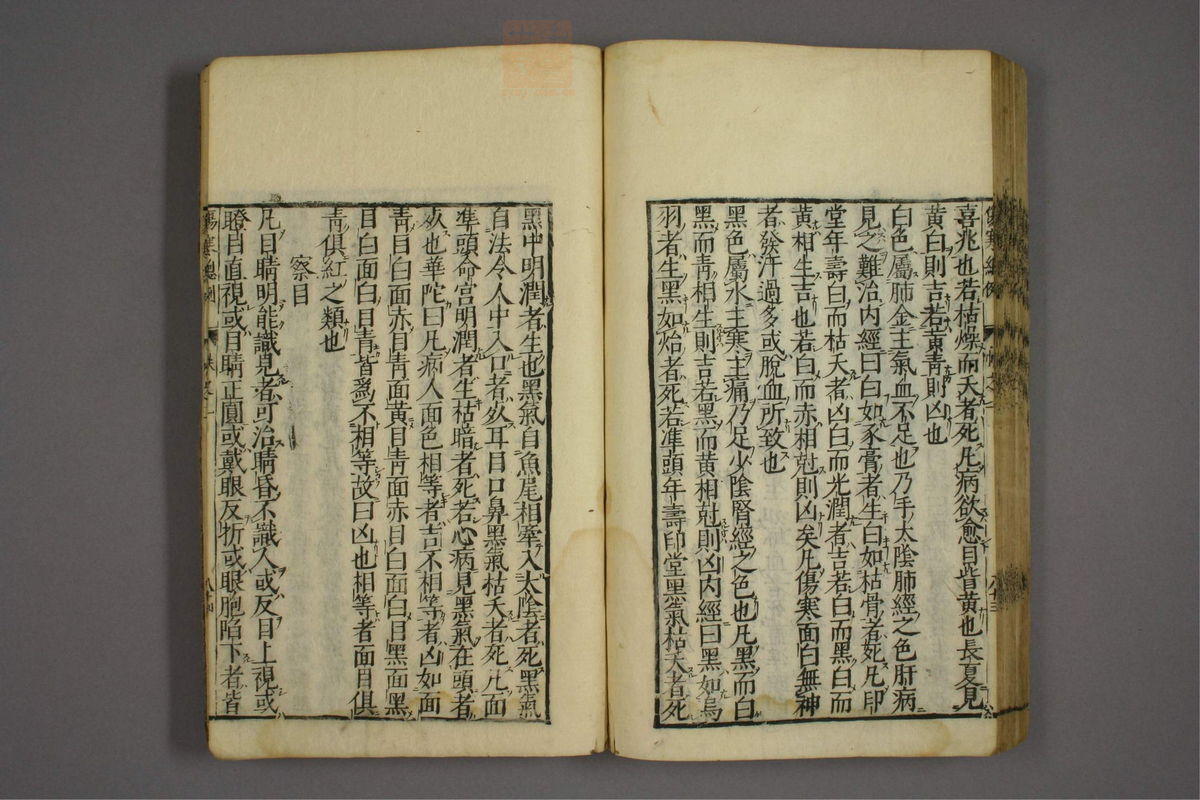 喜兆也若枯燥而夭者死凡病欲愈目眥黄也長夏見
黄白則吉若黄靑則凶也
白色屬肺金主氣血不足也乃手太陰肺經之色肝病
見之難治内經曰白如豕膏者生曰如枯骨者死凡印
堂年壽白而枯夭者凶白而光潤者吉若白而黑白而
黄相生吉也若白而赤相尅則凶矣凡傷寒面白無神
者發汗過多或脫血所致也
黑色屬水主寒主痛乃足少陰腎經之色也凡黑而白
黑而靑相生則吉若黑而黄相尅則凶内經曰黑如烏
羽者生黑如炲者死若凖頭年壽印堂黑氣枯夭者死
黑中明潤者生也黑氣自魚尾相牽入太陰者死黑氣
自法令人中入口者死耳目口鼻黑氣枯夭者死凡面
凖頭命宮明潤者生枯暗者死若心病見黑氣在頭者
死也華陀曰凡病人面色相等者吉不相等者凶如面
靑目白面赤目靑面黄目靑面赤目白面白目黑面黑
目白面白目靑皆爲不相等故曰凶也相等者面目俱
靑俱紅之類也
察目
凡目睛明能識見者可治睛昏不識人或反目上視或
瞪目直視或目睛正圓或戴眼反折或眼胞陷下者皆
傷寒總例
八十四